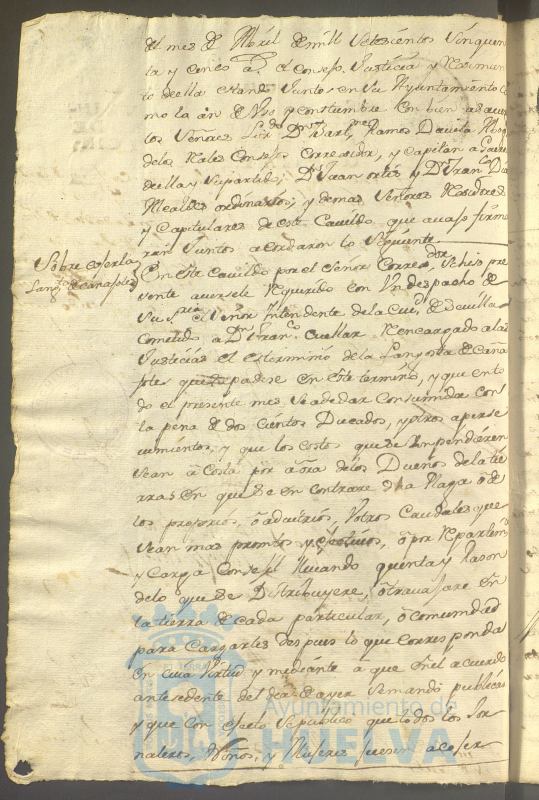 el mes de Abril de mill Setecientos Sinquen
ta y cinco as. el Consejo Justicia y Regimien
to de ella estando Juntos en su Ayuntamiento Co
mo la an de Uso y constumbre Con bien a saver
los Señores Lizdo. Dn. Ramos Davila Abog
de los Reales Consejos Corregidor, y Capitan a Guerra
de ella y su partido; Dn. Juan ortis y Dn. Franco. Dia
Alcaldes ordinarios; y demas Señores Regidores
y Capitulares de este Cavildo que avajo firma
ran Juntos acordaron lo Siguiente
Sobre coser la
Langta. de canafotes
En este Cavildo por el Señor Corregdor. Se hiso pre
sente averse le Requerido con Un despacho de
Su Sria. el Señor Intendente de la Ciud. de Sevilla
Cometido a Dn. Franco. Cuellar Encargado a las
Justicias el esterminio de la Langosta de Caña
fotes que se padese en este termino, y que en to
do el presente mes se a de dar Consumida con
la pena de dos cientos Ducados, y otros aperse
vimientos, y que los costos que se Impendieren
sean a Costa por aora de los Dueños de la tie
rras en que se en contrare dha Plaga o de
los proprios, o advitrios, U otros Caudales que
sean mas promptos y efectivos, o por Repartimto.
y Carga Consejil llevando quenta y Rason
de lo que se Distribuyere, o travajare en
la tierra de cada particular, o comunidad
para Cargarles despues lo que corresponda
En cuia Virtud y mediante a que en el acuerdo
antesedente del dia de ayer se mando publicar
y que con efecto se publico que todos los Jor
naleros, Niños, y Mujeres fuesen a coser
EL TERRAE
Ayuntamiento de
HUELVA